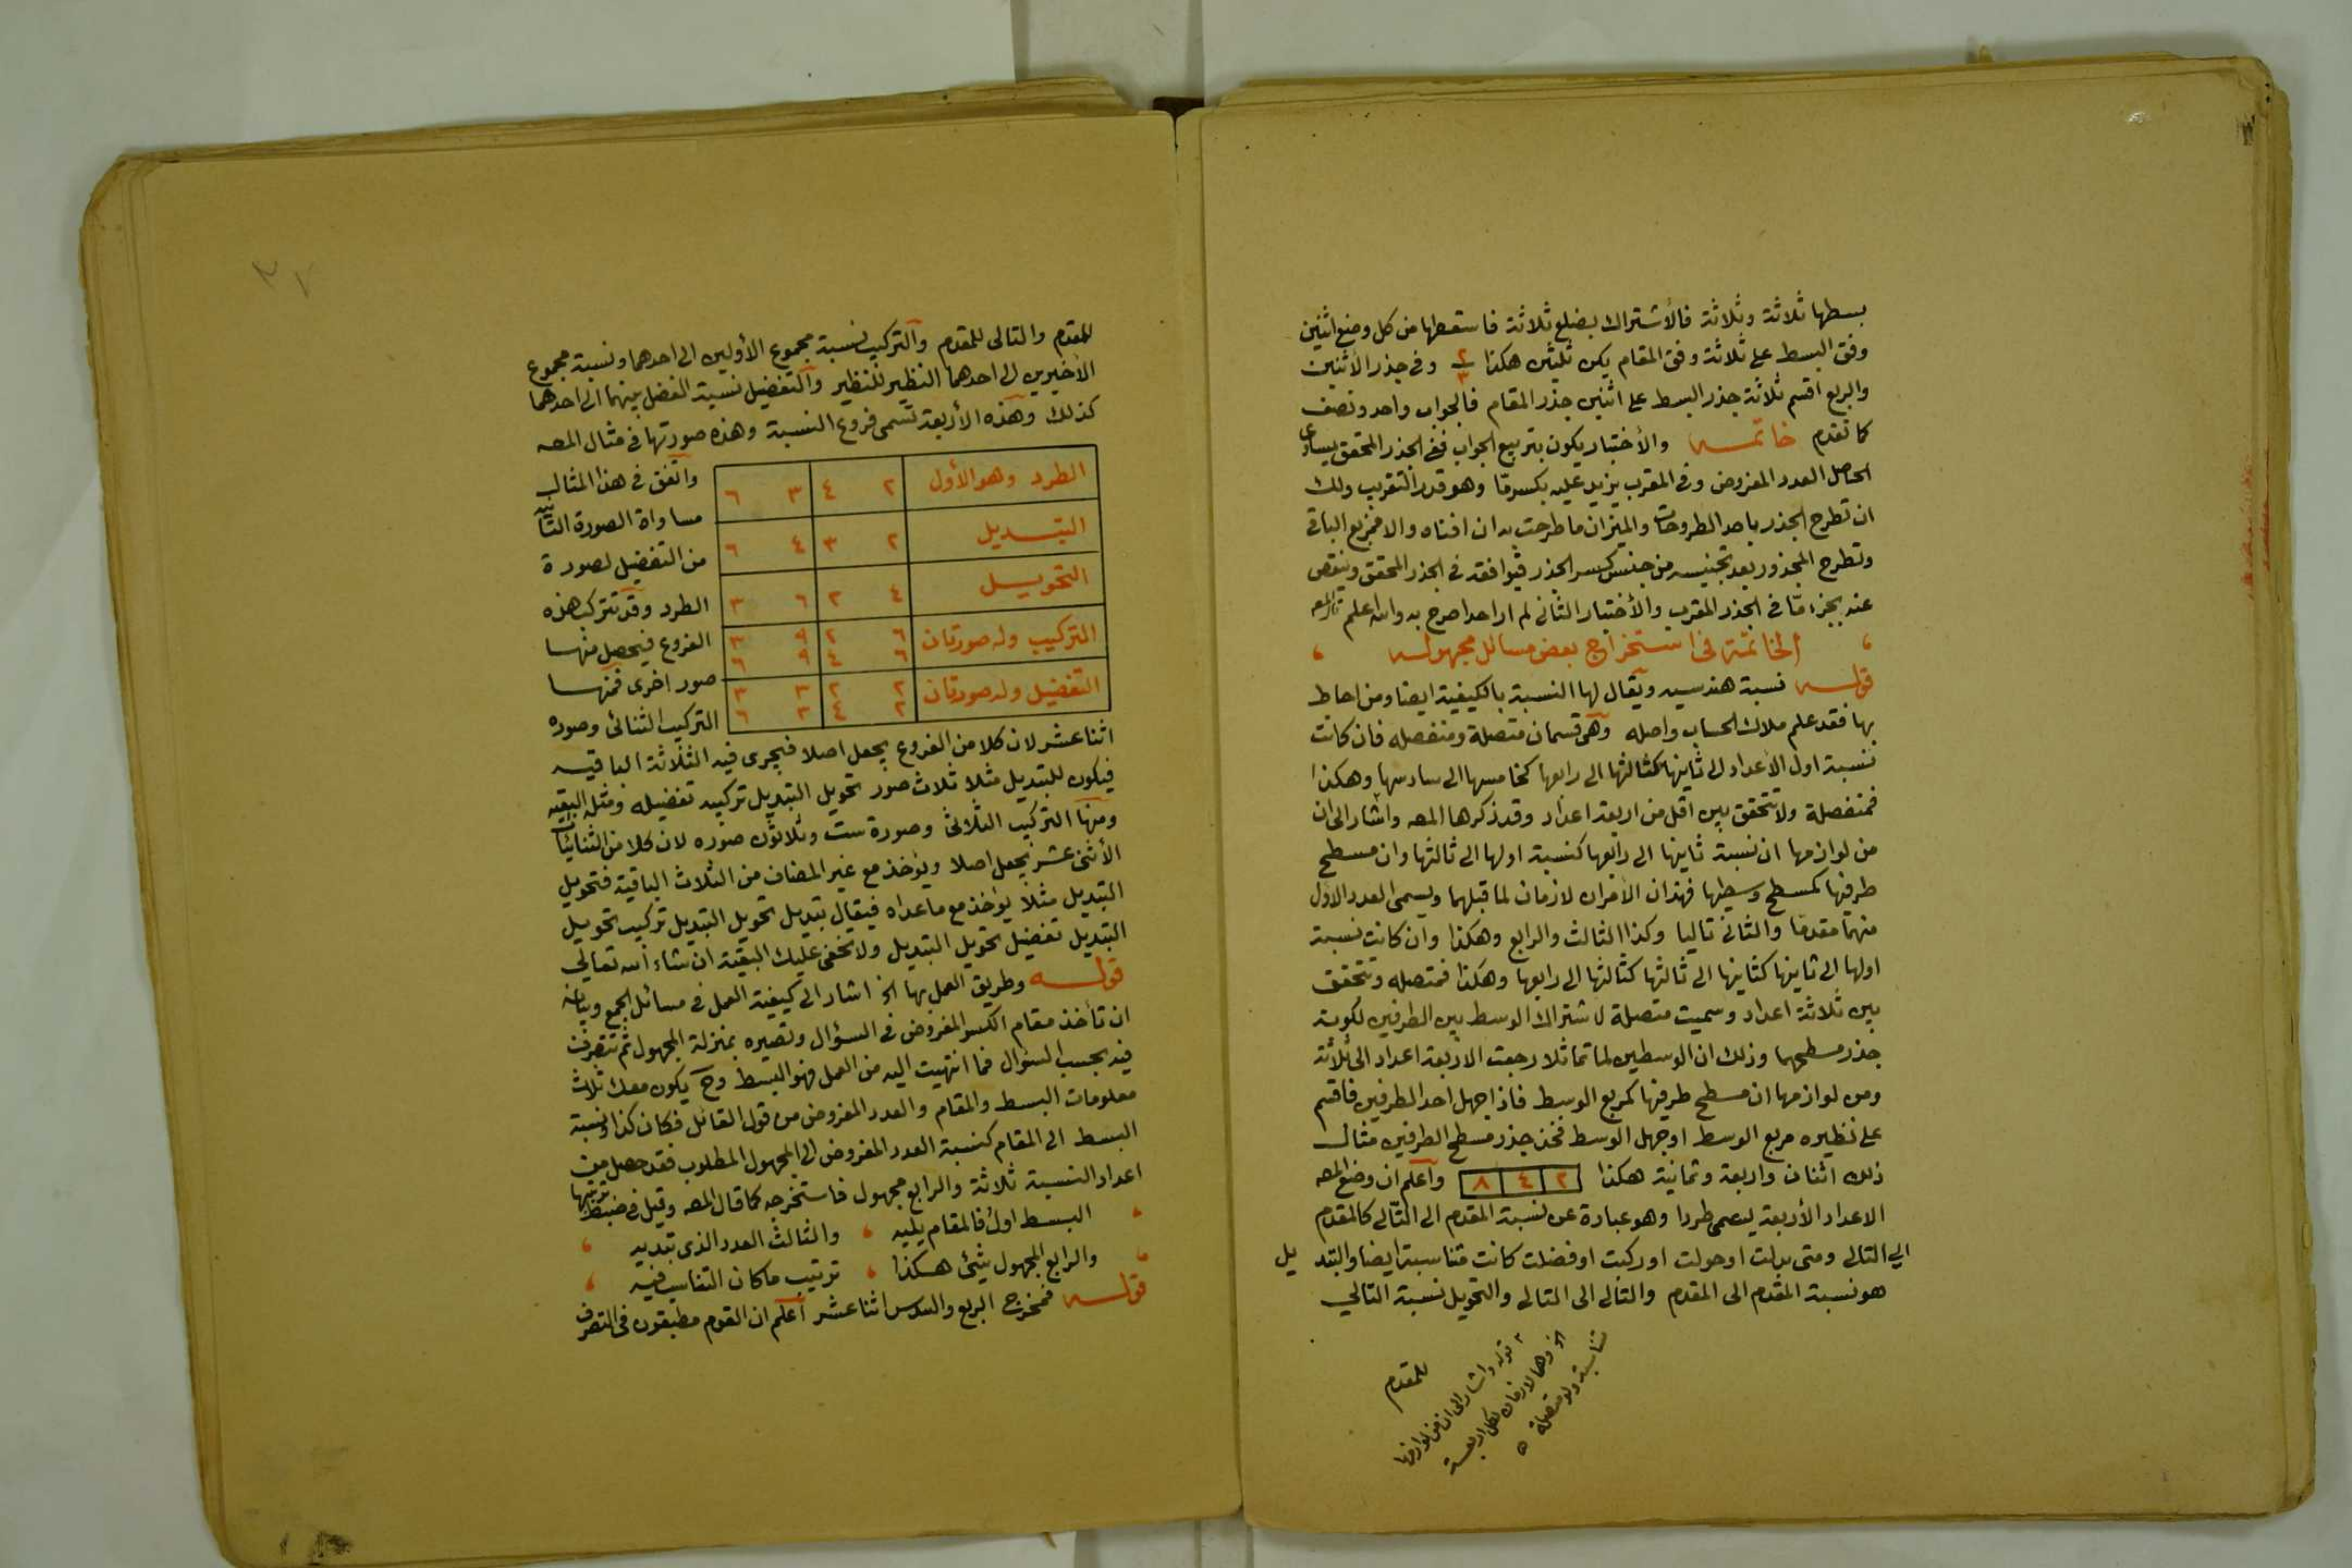 بسطها ثلاثة وثلاثة فالأشتراك بضلع ثلاثة فاسقطها من كل وضع اثنين
وفق البسط على ثلاثة وفق المقام يكن ثلثين هكذا ٢/٣ وفي جذر الأثنين
والربع اقسم ثلاثة جذر البسط على اثنين جذر المقام فالجواب واحد ونصف
كما تقدم خاتمـــه والأختبار يكون بتربيع الجواب ففي الجذر المحقق يساوي
الحاصل العدد المفروض وفي المقرب يزيد عليه بكسر مّا وهو قدر التقريب ولك
ان تطرح الجذر باحد الطروحات والميزان ما طرحت به ان افناه والا فربع الباقي
وتطرح المجذور بعد تجنيسه من جنس كسر الجذر فيوافقه في الجذر المحقق وينقص
عنه بجزء مّا في الجذر المقرب والأختبار الثاني لم ار احدا صرح به والله اعلم
الخاتمة في استخراج بعض مسائل مجهوله
قولـــه نسبة هندسيه ويقال لها النسبة بالكيفية ايضا ومن احاط
بها فقد علم ملاك الحساب واصله وهي قسمان متصلة ومنفصله فان كانت
نسبة اول الأعداد الى ثانيها كثالثها الى رابعها كخامسها الى سادسها وهكذا
فمنفصلة ولا تتحقق بين اقل من اربعة اعداد وقد ذكرها المصـ واشار الى ان
من لوازمها ان نسبة ثانيها الى رابعها كنسبة اولها الى ثالثها وان مسطح
طرفيها كمسطح وسطيها فهذان الأمران لازمان لما قبلهما ويسمى العدد الاول
منهما مقدمّا والثاني تاليا وكذا الثالث والرابع وهكذا وان كانت نسبة
اولها الى ثانيها كثانيها الى ثالثها كثالثها الى رابعها وهكذا فمتصله وتتحقق
بين ثلاثة اعداد وسميت متصلة لاشتراك الوسط بين الطرفين لكونه
جذر مسطحهما وذلك ان الوسطين لما تماثلا رجعت الاربعة اعداد الى ثلاثة
ومن لوازمها ان مسطح طرفيها كمربع الوسط فاذا جهل احد الطرفين فاقسم
على نظيره مربع الوسط او جهل الوسط فخذ جذر مسطح الطرفين مثالـ
ذلك اثنان واربعة وثمانية هكذا ٢ ٤ ٨ واعلم ان وضع المصـ
الاعداد الأربعة يسمى طردا وهو عبارة عن نسبة المقدم الى التّالي كالمقدم
الى التالي ومتى بدلت او حولت او ركبت او فضلت كانت متناسبة ايضا والتبديل
هو نسبة المقدم الى المقدم والتالي الى التالي والتحويل نسبة التالي
للمقدم
قوله واشار الى ان من لوازمها
الخ وهما لازمان لكل اربعة
متناسبة ولو متصلة
٢٧
للمقدم والتالي للمقدم والتركيب نسبة مجموع الأولين الى احدهما ونسبة مجموع
الأخيرين الى احدهما النظير للنظير والتفضيل نسبة الفضل بينهما الى احدهما
كذلك وهذه الأربعة تسمى فروع النسبة وهذه صورتها في مثال المصـ
الطرد وهو الأول ٢ ٤ ٣ ٦
التبـــديل ٢ ٣ ٤ ٦
التحويـــل ٤ ٢ ٦ ٣
التركيب وله صورتان ٦ ٢ ٩ ٣
٦ ٤ ٩ ٦
التفضيل وله صورتان ٢ ٢ ٣ ٣
٢ ٤ ٣ ٦
واتفق في هذا المثال
مساواة الصورة الثانية
من التفضيل لصورة
الطرد وقد تتركب هذه
الفروع فيحصل منها
صور اخرى فمنها
التركيب الثنائي وصوره
اثنا عشر لان كلا من الفروع يجعل اصلا فيجرى فيه الثلاثة الباقيه
فيكون للتبديل مثلا ثلاث صور تحويل التبديل تركيبه تفضيله ومثله البقيه
ومنها التركيب الثلاثي وصورة ست وثلاثون صوره لان كلا من الثنائيات
الأثنى عشر يجعل اصلا ويؤخذ مع غير المضاف من الثلاث الباقية فتحويل
التبديل مثلاً يؤخذ مع ما عداه فيقال تبديل تحويل التبديل تركيب تحويل
التبديل تفضيل تحويل التبديل ولا تخفى عليك البقية ان شاء الله تعالى
قولـــه وطريق العمل بها الخ اشار الى كيفية العمل في مسائل الجمع وبيانه
ان تأخذ مقام الكسر المفروض في السؤال وتصيره بمنزلة المجهول ثم تتصرف
فيه بحسب السؤال فما انتهيت اليه من العمل فهو البسط وح يكون معك ثلاث
معلومات البسط والمقام والعدد المفروض من قول القائل فكان كذا ونسبة
البسط الى المقام كنسبة العدد المفروض الى المجهول المطلوب فقد حصل من
اعداد النسبة ثلاثة والرابع مجهول فاستخرجه كما قال المصـ وقيل في ضبط ترتيبها
البسط اول فالمقام يليه والثالث العدد الذي تبديه
والرابع المجهول شئ هكذا ترتيب ما كان التناسب فيه
قولـــه فمخرج الربع والسدس اثنا عشر اعلم ان القوم مطبقون في التصرف